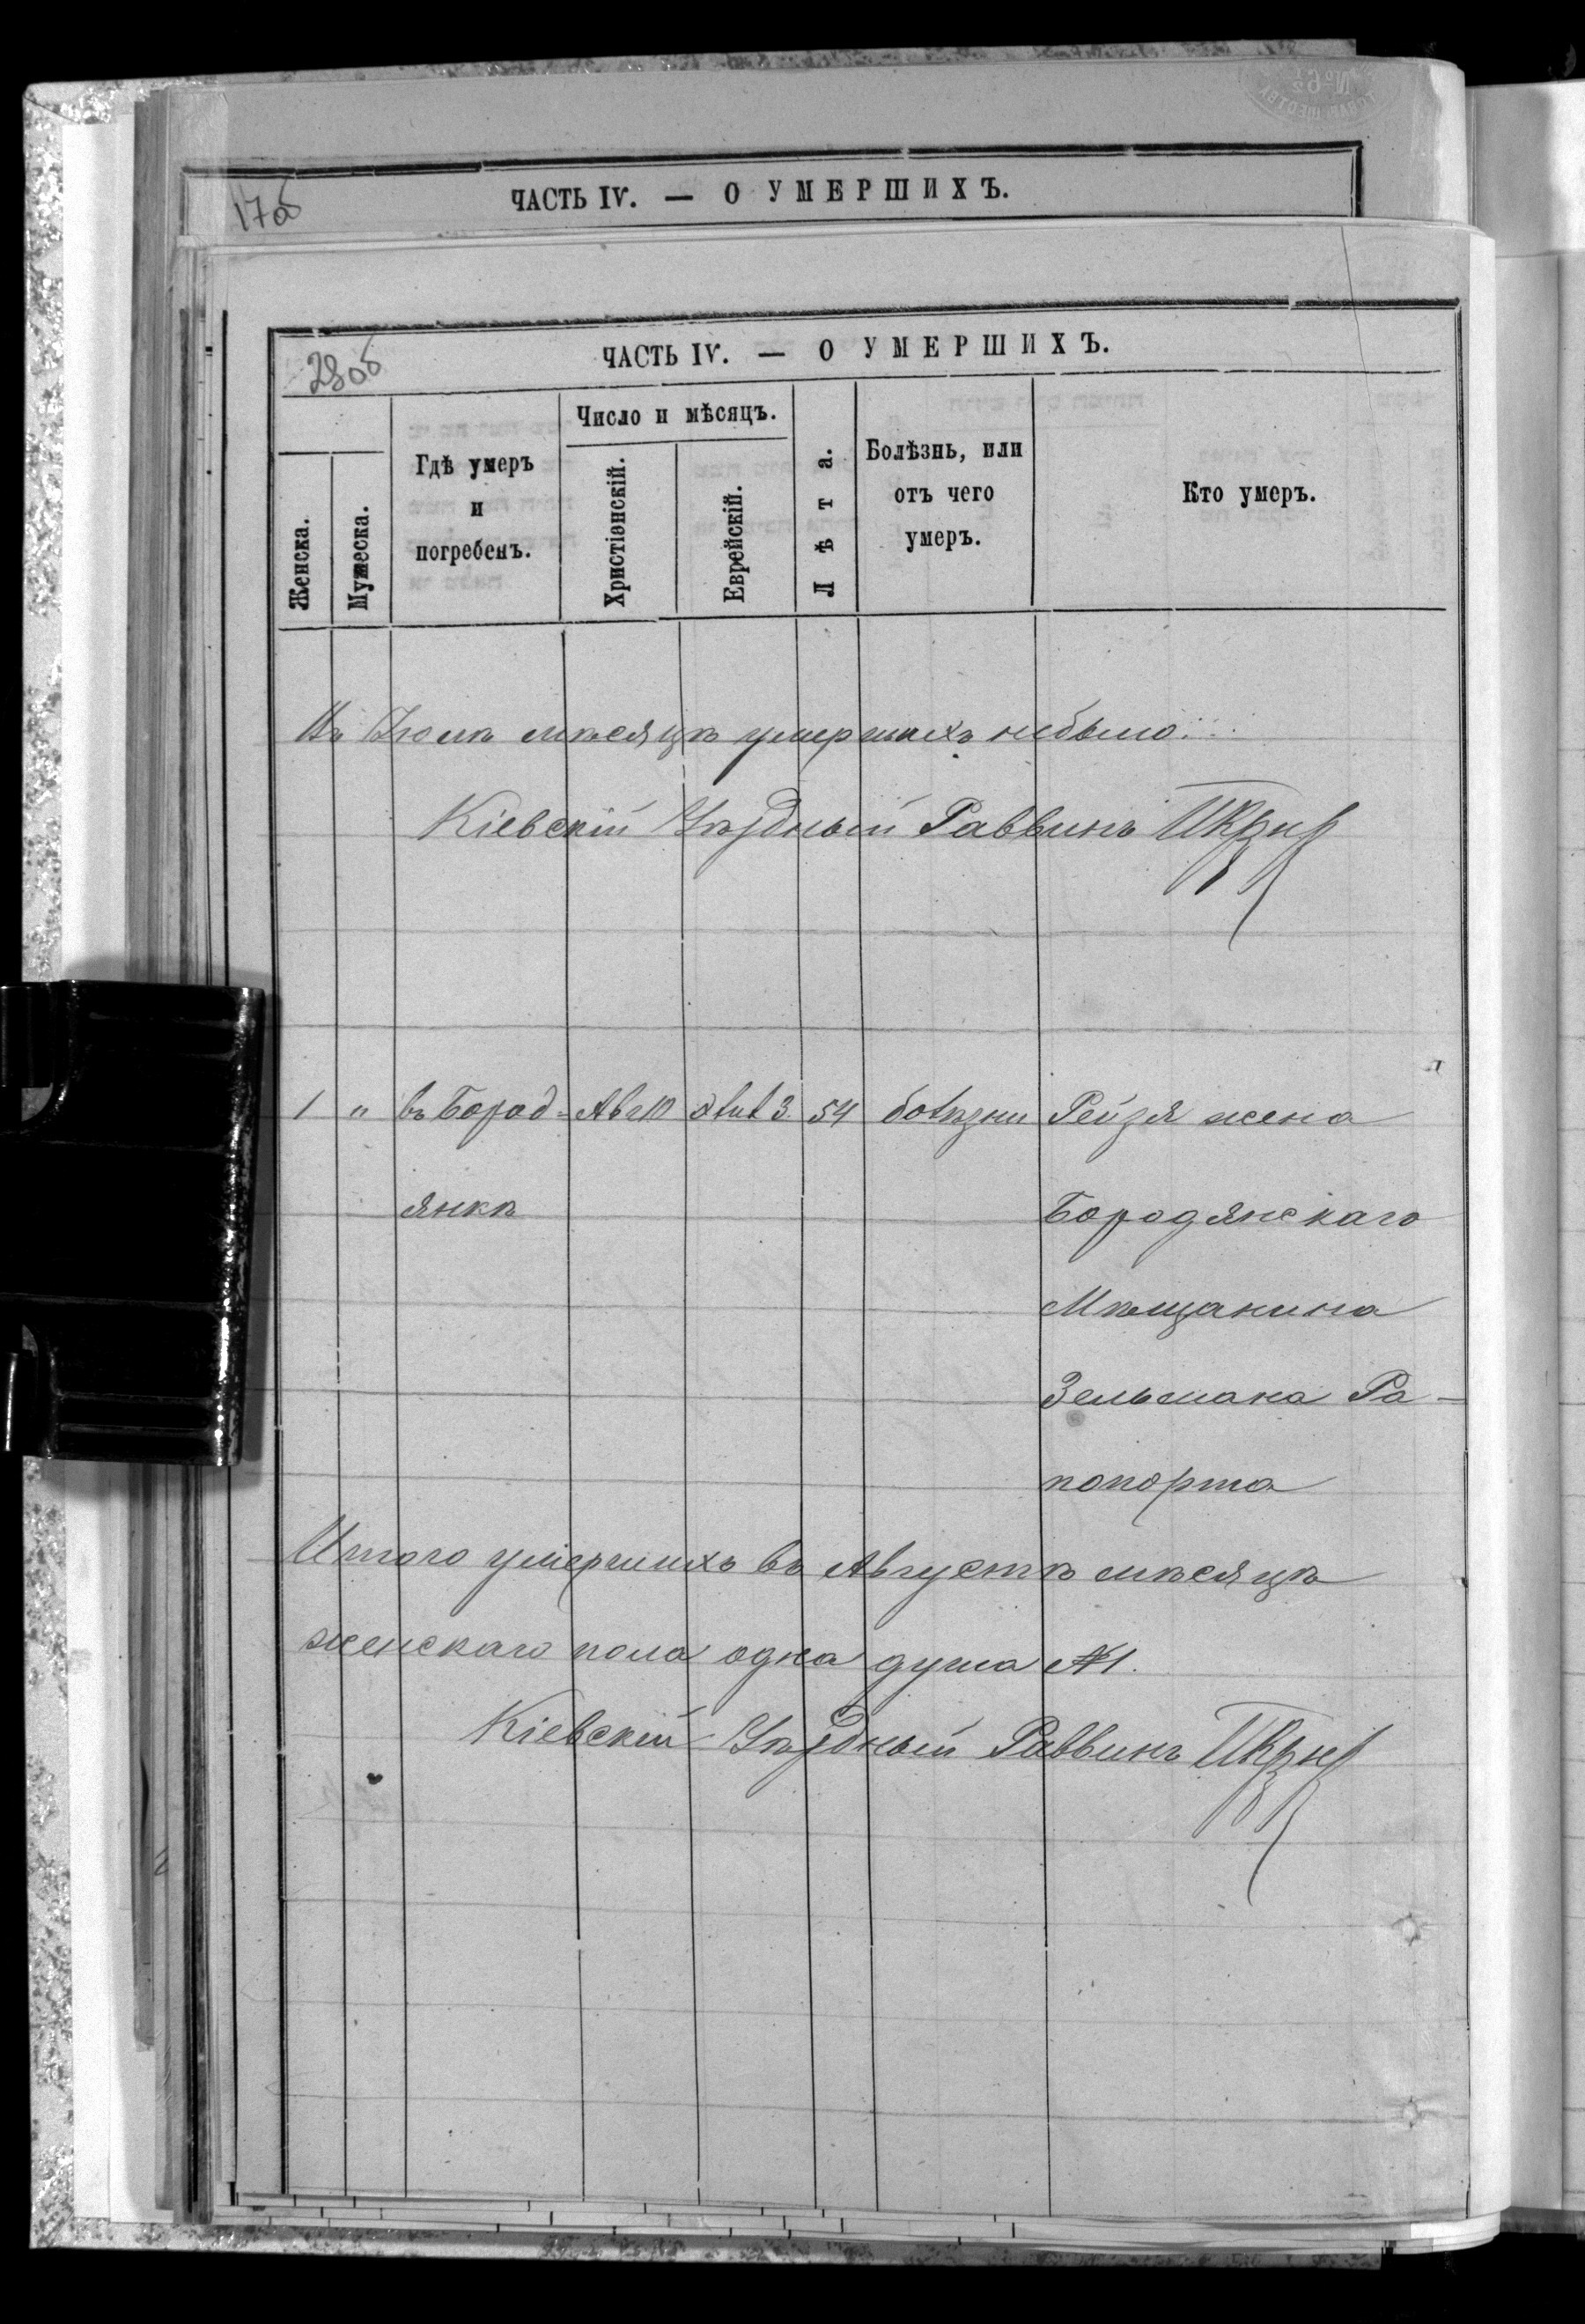 17об
ЧАСТЬ IV. — О УМЕРШИХЪ.
28об
ЧАСТЬ IV. — О УМЕРШИХЪ.
Женска.
Мужеска.
Гдѣ умеръ
и
погребенъ.
Число и мѣсяцъ.
Христіанскій.
Еврейскій.
Лѣта.
Болѣзнь, или
отъ чего
умеръ.
Кто умеръ.
Въ Іюлѣ мѣсяцѣ умершихъ небыло
Кіевскій Уѣздный Раввинъ
1 " въ Бород- Авг 10 3 54 болѣзни Рейзя жена
" янкѣ Бородянскаго
Мѣщанина
Зельмана Ра-
попорта
Итого умершихъ въ Августѣ мѣсяцѣ
женскаго пола одна душа №1.
Кіевскій Уѣздный Раввинъ